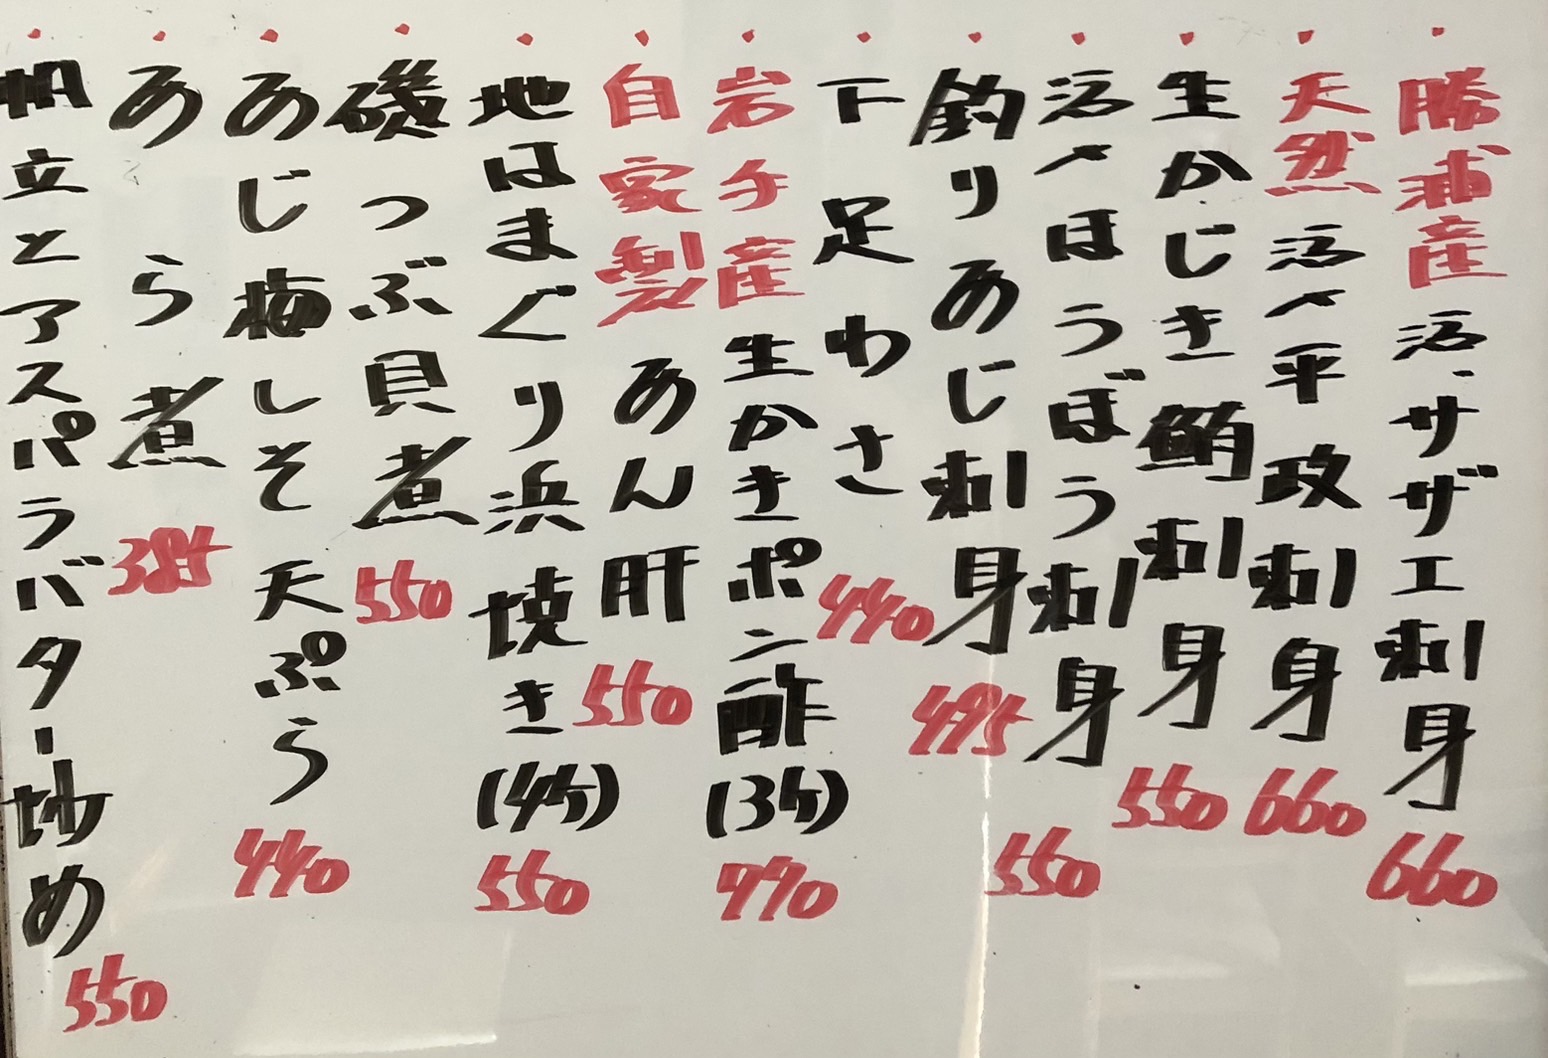 ・勝浦産 活サザエ刺身 660
・天然 活〆平政刺身 660
・生かじき鮪刺身 550
・活〆ほうぼう刺身 550
・釣りあじ刺身 495
・下足わさ 440
・岩手産 生かきポン酢(3ケ) 770
・自家製 あん肝 550
・地はまぐり浜焼き(4ケ) 550
・磯つぶ貝煮 550
・あじ梅しそ天ぷら 440
・あら煮 385
・帆立とアスパラバター炒め 550